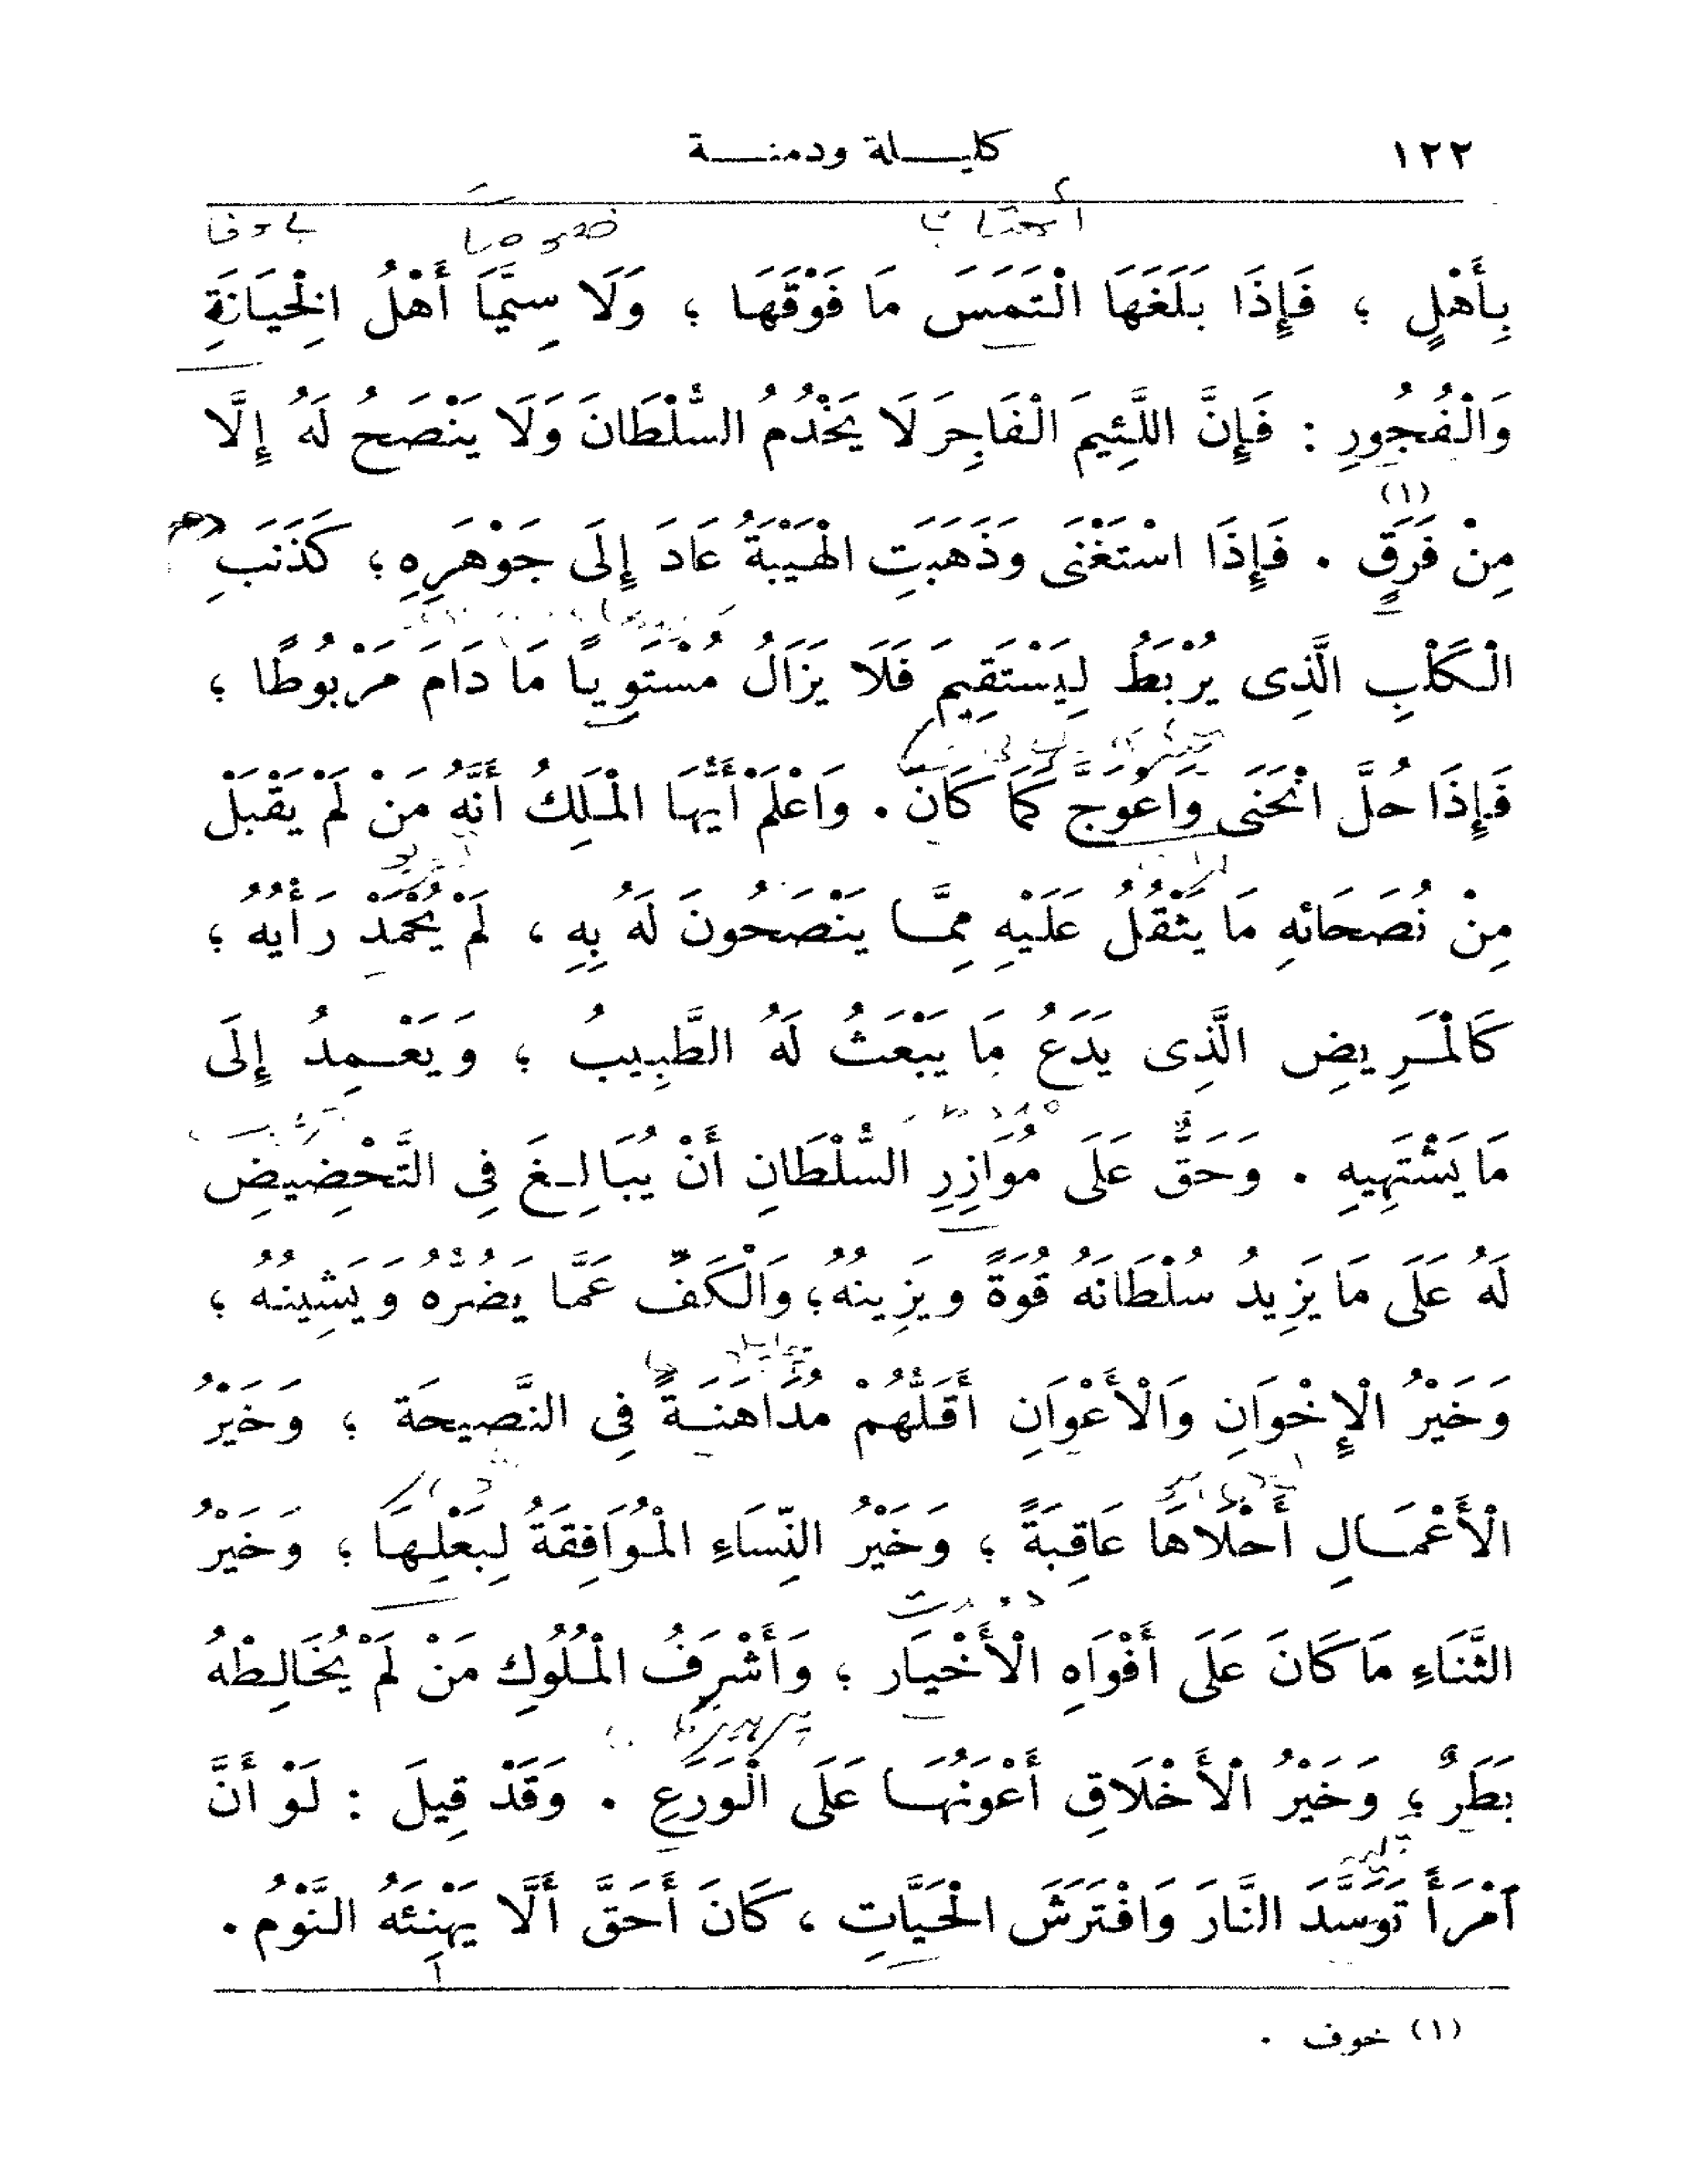 ١٢٢
كليلة ودمنة
بِأَهْلٍ ؛ فَإِذَا بَلَغَهَا الْتَمَسَ مَا فَوْقَهَا ؛ وَلَا سِيَّمَا أَهْلُ الْخِيَانَةِ
وَالْفُجُورِ : فَإِنَّ اللَّئِيمَ الْفَاجِرَ لَا يَخْدُمُ السُّلْطَانَ وَلَا يَنْصَحُ لَهُ إِلَّا
مِنْ فَرَقٍ (١) . فَإِذَا اسْتَغْنَى وَذَهَبَتِ الْهَيْبَةُ عَادَ إِلَى جَوْهَرِهِ ؛ كَذَنَبِ
الْكَلْبِ الَّذِى يُرْبَطُ لِيَسْتَقِيمَ فَلَا يَزَالُ مُسْتَوِياً مَا دَامَ مَرْبُوطًا ؛
فَإِذَا حُلَّ انْحَنَى وَاعْوَجَّ كَمَا كَانَ . وَاعْلَمْ أَيُّهَا الْمَلِكُ أَنَّهُ مَنْ لَمْ يَقْبَلْ
مِنْ نُصَحَائِهِ مَا يَثْقُلُ عَلَيْهِ مِمَّا يَنْصَحُونَ لَهُ بِهِ ، لَمْ يُحْمَدْ رَأْيُهُ ؛
كَالْمَرِيضِ الَّذِى يَدَعُ مَا يَبْعَثُ لَهُ الطَّبِيبُ ؛ وَيَعْمِدُ إِلَى
مَا يَشْتَهِيهِ . وَحَقٌّ عَلَى مُوَازِرِ السُّلْطَانِ أَنْ يُبَالِغَ فِى التَّحْضِيضِ
لَهُ عَلَى مَا يَزِيدُ سُلْطَانَهُ قُوَّةً وَيَزِينُهُ ؛ وَالْكَفِّ عَمَّا يَضُرُّهُ وَيَشِينُهُ ؛
وَخَيْرُ الْإِخْوَانِ وَالْأَعْوَانِ أَقَلُّهُمْ مُدَاهَنَةً فِى النَّصِيحَة ؛ وَخَيْرُ
الْأَعْمَالِ أَحْلَاهَا عَاقِبَةً ؛ وَخَيْرُ النِّسَاءِ الْمُوَافِقَةُ لِبَعْلِهَا ؛ وَخَيْرُ
الثَّنَاءِ مَا كَانَ عَلَى أَفْوَاهِ الْأَخْيَارِ ؛ وَأَشْرَفُ الْمُلُوكِ مَنْ لَمْ يُخَالِطْهُ
بَطَرٌ ؛ وَخَيْرُ الْأَخْلَاقِ أَعْوَنُهَا عَلَى الْوَرَعِ . وَقَدْ قِيلَ : لَوْ أَنَّ
اَمْرَأً تَوَسَّدَ النَّارَ وَافْتَرَشَ الْحَيَّاتِ ، كَانَ أَحَقَّ أَلَّا يَهْنِئَهُ النَّوْمُ .
(١) خوف .